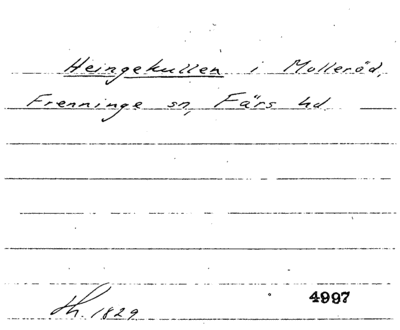 Heingekullen i Molleröd,
Frenninge sn, Färs hd
Hh. 1829
4997